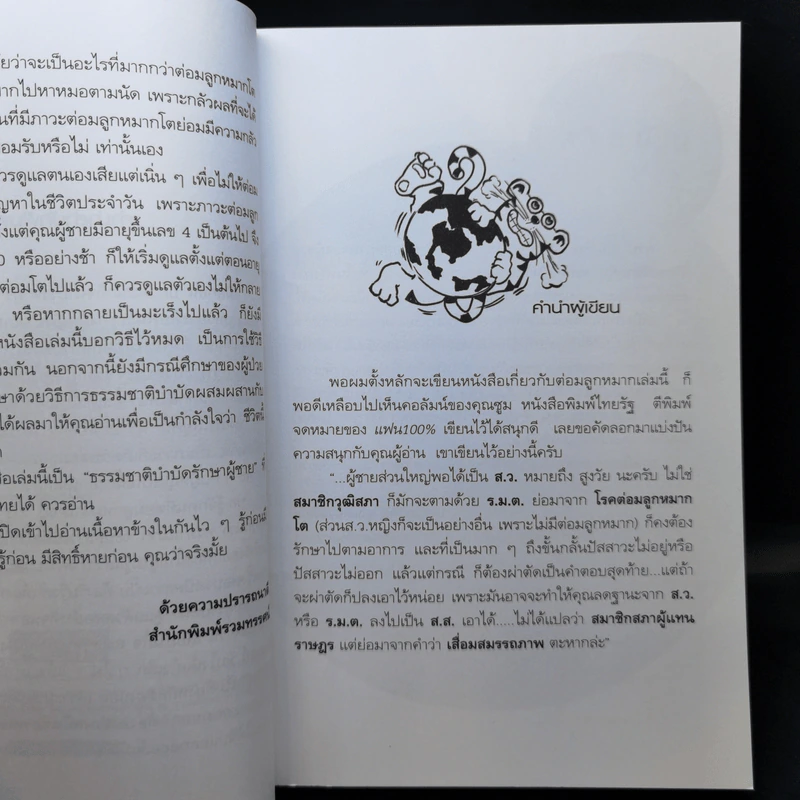 ยว่าจะเป็นอะไรที่มากกว่าต่อมลูกหมากโต
ากไปหาหมอตามนัด เพราะกลัวผลที่จะได้
นที่มีภาวะต่อมลูกหมากโตย่อมมีความกลัว
อมรับหรือไม่ เท่านั้นเอง
ควรดูแลตนเองเสียแต่เนิ่น ๆ เพื่อไม่ให้ต่อม
ญหาในชีวิตประจำวัน เพราะภาวะต่อมลูก
ั้งแต่คุณผู้ชายมีอายุขึ้นเลข 4 เป็นต้นไป จึง
0 หรืออย่างช้า ก็ให้เริ่มดูแลตั้งแต่ตอนอายุ
ต่อมโตไปแล้ว ก็ควรดูแลตัวเองไม่ให้กลาย
หรือหากกลายเป็นมะเร็งไปแล้ว ก็ยังมี
หนังสือเล่มนี้บอกวิธีไว้หมด เป็นการใช้วิธี
มกัน นอกจากนี้ยังมีกรณีศึกษาของผู้ป่วย
ษาด้วยวิธีการธรรมชาติบำบัดผสมผสานกับ
ได้ผลมาให้คุณอ่านเพื่อเป็นกำลังใจว่า ชีวิตนี้
อเล่มนี้เป็น "ธรรมชาติบำบัดรักษาผู้ชาย" ที่
ทยได้ ควรอ่าน
ปิดเข้าไปอ่านเนื้อหาข้างในกันไว ๆ รู้ก่อนมี
รู้ก่อน มีสิทธิ์หายก่อน คุณว่าจริงมั้ย
ด้วยความปรารถนาดี
สำนักพิมพ์รวมทรรศน์
คำนำผู้เขียน
พอผมตั้งหลักจะเขียนหนังสือเกี่ยวกับต่อมลูกหมากเล่มนี้ ก็
พอดีเหลือบไปเห็นคอลัมน์ของคุณซูม หนังสือพิมพ์ไทยรัฐ ตีพิมพ์
จดหมายของ แฟน100% เขียนไว้ได้สนุกดี เลยขอคัดลอกมาแบ่งปัน
ความสนุกกับคุณผู้อ่าน เขาเขียนไว้อย่างนี้ครับ
"...ผู้ชายส่วนใหญ่พอได้เป็น ส.ว. หมายถึง สูงวัย นะครับ ไม่ใช่
สมาชิกวุฒิสภา ก็มักจะตามด้วย ร.ม.ต. ย่อมาจาก โรคต่อมลูกหมาก
โต (ส่วนส.ว.หญิงก็จะเป็นอย่างอื่น เพราะไม่มีต่อมลูกหมาก) ก็คงต้อง
รักษาไปตามอาการ และที่เป็นมาก ๆ ถึงขั้นกลั้นปัสสาวะไม่อยู่หรือ
ปัสสาวะไม่ออก แล้วแต่กรณี ก็ต้องผ่าตัดเป็นคำตอบสุดท้าย...แต่ถ้า
จะผ่าตัดก็ปลงเอาไว้หน่อย เพราะมันอาจจะทำให้คุณลดฐานะจาก ส.ว.
หรือ ร.ม.ต. ลงไปเป็น ส.ส. เอาได้.....ไม่ได้แปลว่า สมาชิกสภาผู้แทน
ราษฎร แต่ย่อมาจากคำว่า เสื่อมสมรรถภาพ ตะหากล่ะ"